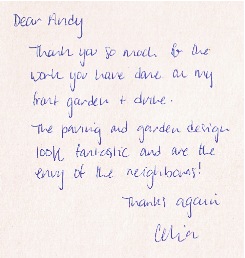 Dear Andy
Thank you so much for the
work you have done on my
front garden + drive.
The paving and garden design
look fantastic and are the
envy of the neighbours!
Thanks again
Celia